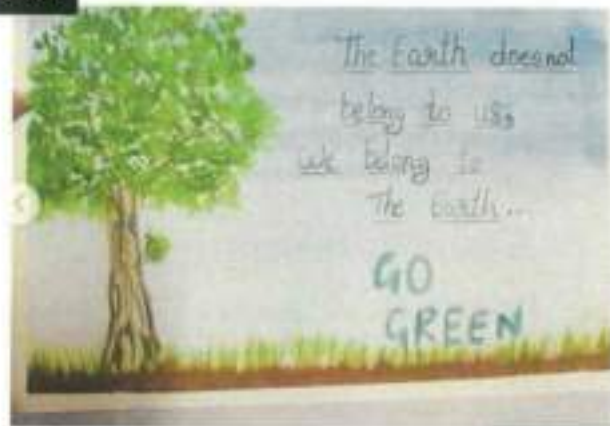 The Earth does not
belong to us,
we belong to
The Earth...
GO
GREEN